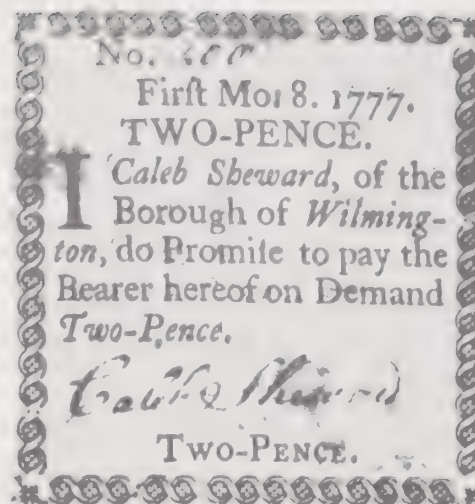 No.
Firſt Mo. 8. 1777.
TWO-PENCE.
I Caleb Sheward, of the
Borough of Wilming-
ton, do Promiſe to pay the
Bearer hereof on Demand
Two-Pence.
Caleb Sheward
TWO-PENCE.